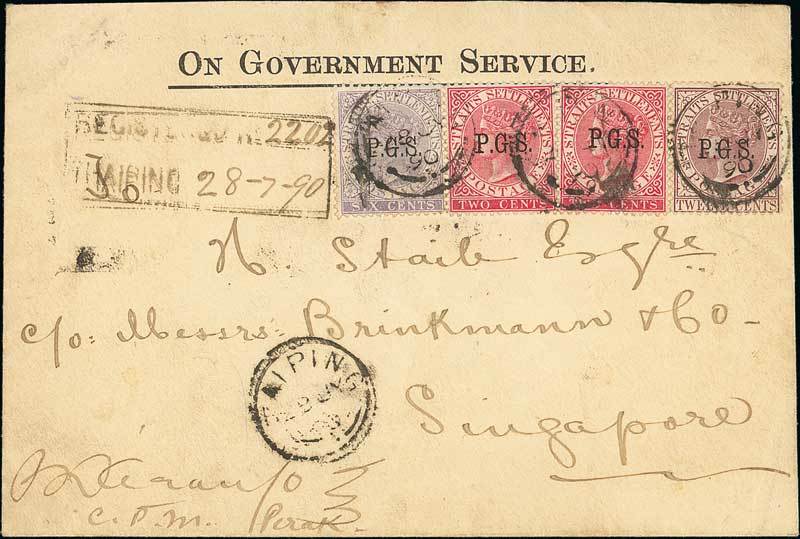 ON GOVERNMENT SERVICE.
REGISTERED No 2202
TAIPING 28-7-90
STRAITS SETTLEMENTS P.G.S. POSTAGE SIX CENTS
STRAITS SETTLEMENTS P.G.S. POSTAGE TWO CENTS
STRAITS SETTLEMENTS P.G.S. POSTAGE CENTS
STRAITS SETTLEMENTS P.G.S. POSTAGE CENTS
90
N. Staib Esqre
c/o: Messrs: Brinkmann & Co-
Singapore
TAIPING
C.P.M. Perak.